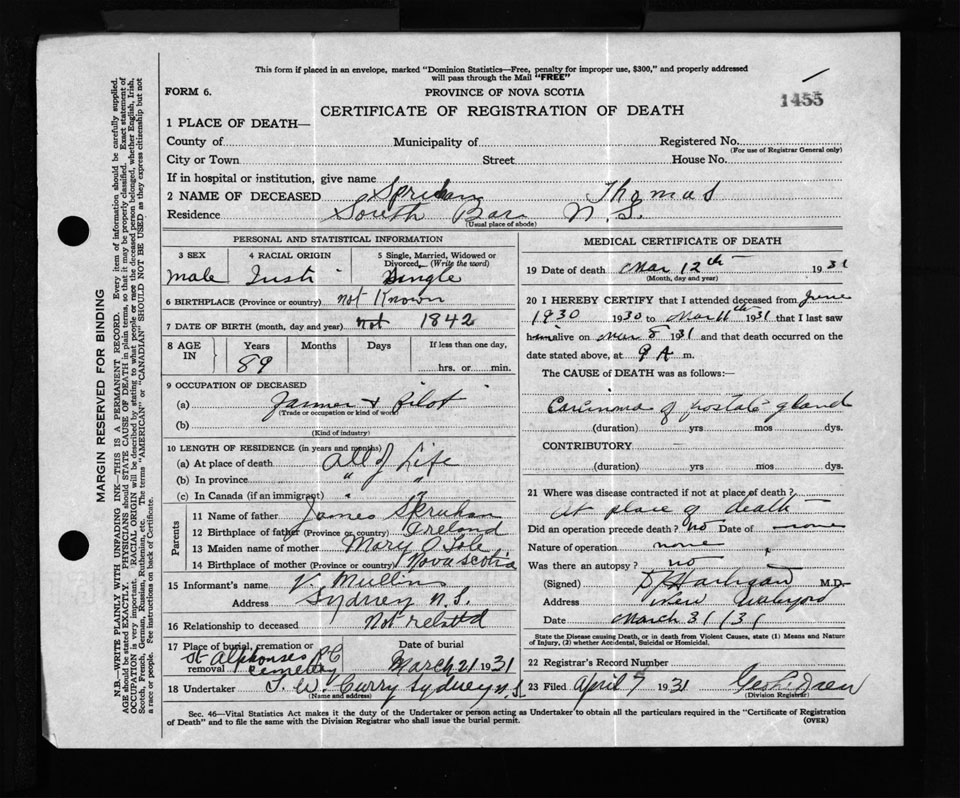 This form if placed in an envelope, marked "Dominion Statistics—Free, penalty for improper use, $300," and properly addressed
will pass through the Mail "FREE"
FORM 6.
PROVINCE OF NOVA SCOTIA
1455
CERTIFICATE OF REGISTRATION OF DEATH
1 PLACE OF DEATH—
County of Municipality of Registered No.
(For use of Registrar General only)
City or Town Street House No.
If in hospital or institution, give name
2 NAME OF DECEASED Spruhan Thomas
Residence South Bar N. S.
(Usual place of abode)
PERSONAL AND STATISTICAL INFORMATION
3 SEX 4 RACIAL ORIGIN 5 Single, Married, Widowed or Divorced (Write the word)
male Irish Single
6 BIRTHPLACE (Province or country) not Known
7 DATE OF BIRTH (month, day and year) not 1842
8 AGE IN Years Months Days If less than one day,
89 hrs. or min.
9 OCCUPATION OF DECEASED
(a) Farmer & Pilot
(Trade or occupation or kind of work)
(b)
(Kind of industry)
10 LENGTH OF RESIDENCE (in years and months)
(a) At place of death All of Life
(b) In province " "
(c) In Canada (if an immigrant) " "
Parents
11 Name of father James Spruhan
12 Birthplace of father (Province or country) Ireland
13 Maiden name of mother Mary O Tole
14 Birthplace of mother (Province or country) Nova scotia
15 Informant's name V. Mullins
Address Sydney N. S.
16 Relationship to deceased Not related
17 Place of burial, cremation or removal Date of burial
St Alphonses R C cemetery March 21 1931
18 Undertaker T. W. Curry Sydney N. S.
(Name and address)
MEDICAL CERTIFICATE OF DEATH
19 Date of death Mar 12th 1931
(Month, day and year)
20 I HEREBY CERTIFY that I attended deceased from June
1930 1930 to Mar 11th 1931 that I last saw
him alive on Mar 8 1931 and that death occurred on the
date stated above, at 9 A m.
The CAUSE of DEATH was as follows:—
Carcinoma of prostate gland
(duration) yrs mos dys.
CONTRIBUTORY
(duration) yrs. mos. dys.
21 Where was disease contracted if not at place of death?
At place of death
Did an operation precede death? no Date of none
Nature of operation none
Was there an autopsy? no
(Signed) M.D.
Address New Waterford
Date March 31/31
State the Disease causing Death, or in death from Violent Causes, state (1) Means and Nature
of Injury, (2) whether Accidental, Suicidal or Homicidal.
22 Registrar's Record Number
23 Filed April 7 1931
(Division Registrar)
Sec. 46—Vital Statistics Act makes it the duty of the Undertaker or person acting as Undertaker to obtain all the particulars required in the "Certificate of Registration
of Death" and to file the same with the Division Registrar who shall issue the burial permit.
(OVER)
MARGIN RESERVED FOR BINDING
N.B.—WRITE PLAINLY WITH UNFADING INK—THIS IS A PERMANENT RECORD. Every item of information should be carefully supplied.
AGE should be stated EXACTLY. PHYSICIANS should STATE CAUSE OF DEATH in plain terms, so that it may be properly classified. Exact statement of
OCCUPATION is very important. RACIAL ORIGIN will be described by stating to what people or race the deceased person belonged, whether English, Irish,
Scotch, French, German, Russian, Ruthenian, etc. The terms "AMERICAN" or "CANADIAN" SHOULD NOT BE USED as they express citizenship but not
a race or people. See instructions on back of Certificate.